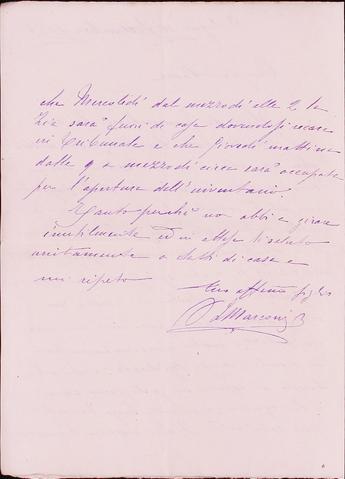 che Mercoledì dal mezzodì alle 2 la
zia sarà fuori di casa dovendosi recare
in Tribunale e che giovedì mattina
dalle 9 a mezzodì circa sarà occupata
per l'apertura dell'inventario.
Tanto perchè non abbi a girare
inutilmente ed in attesa ti saluto
unitamente a tutti di casa e
mi ripeto
tuo affmo
Marconi